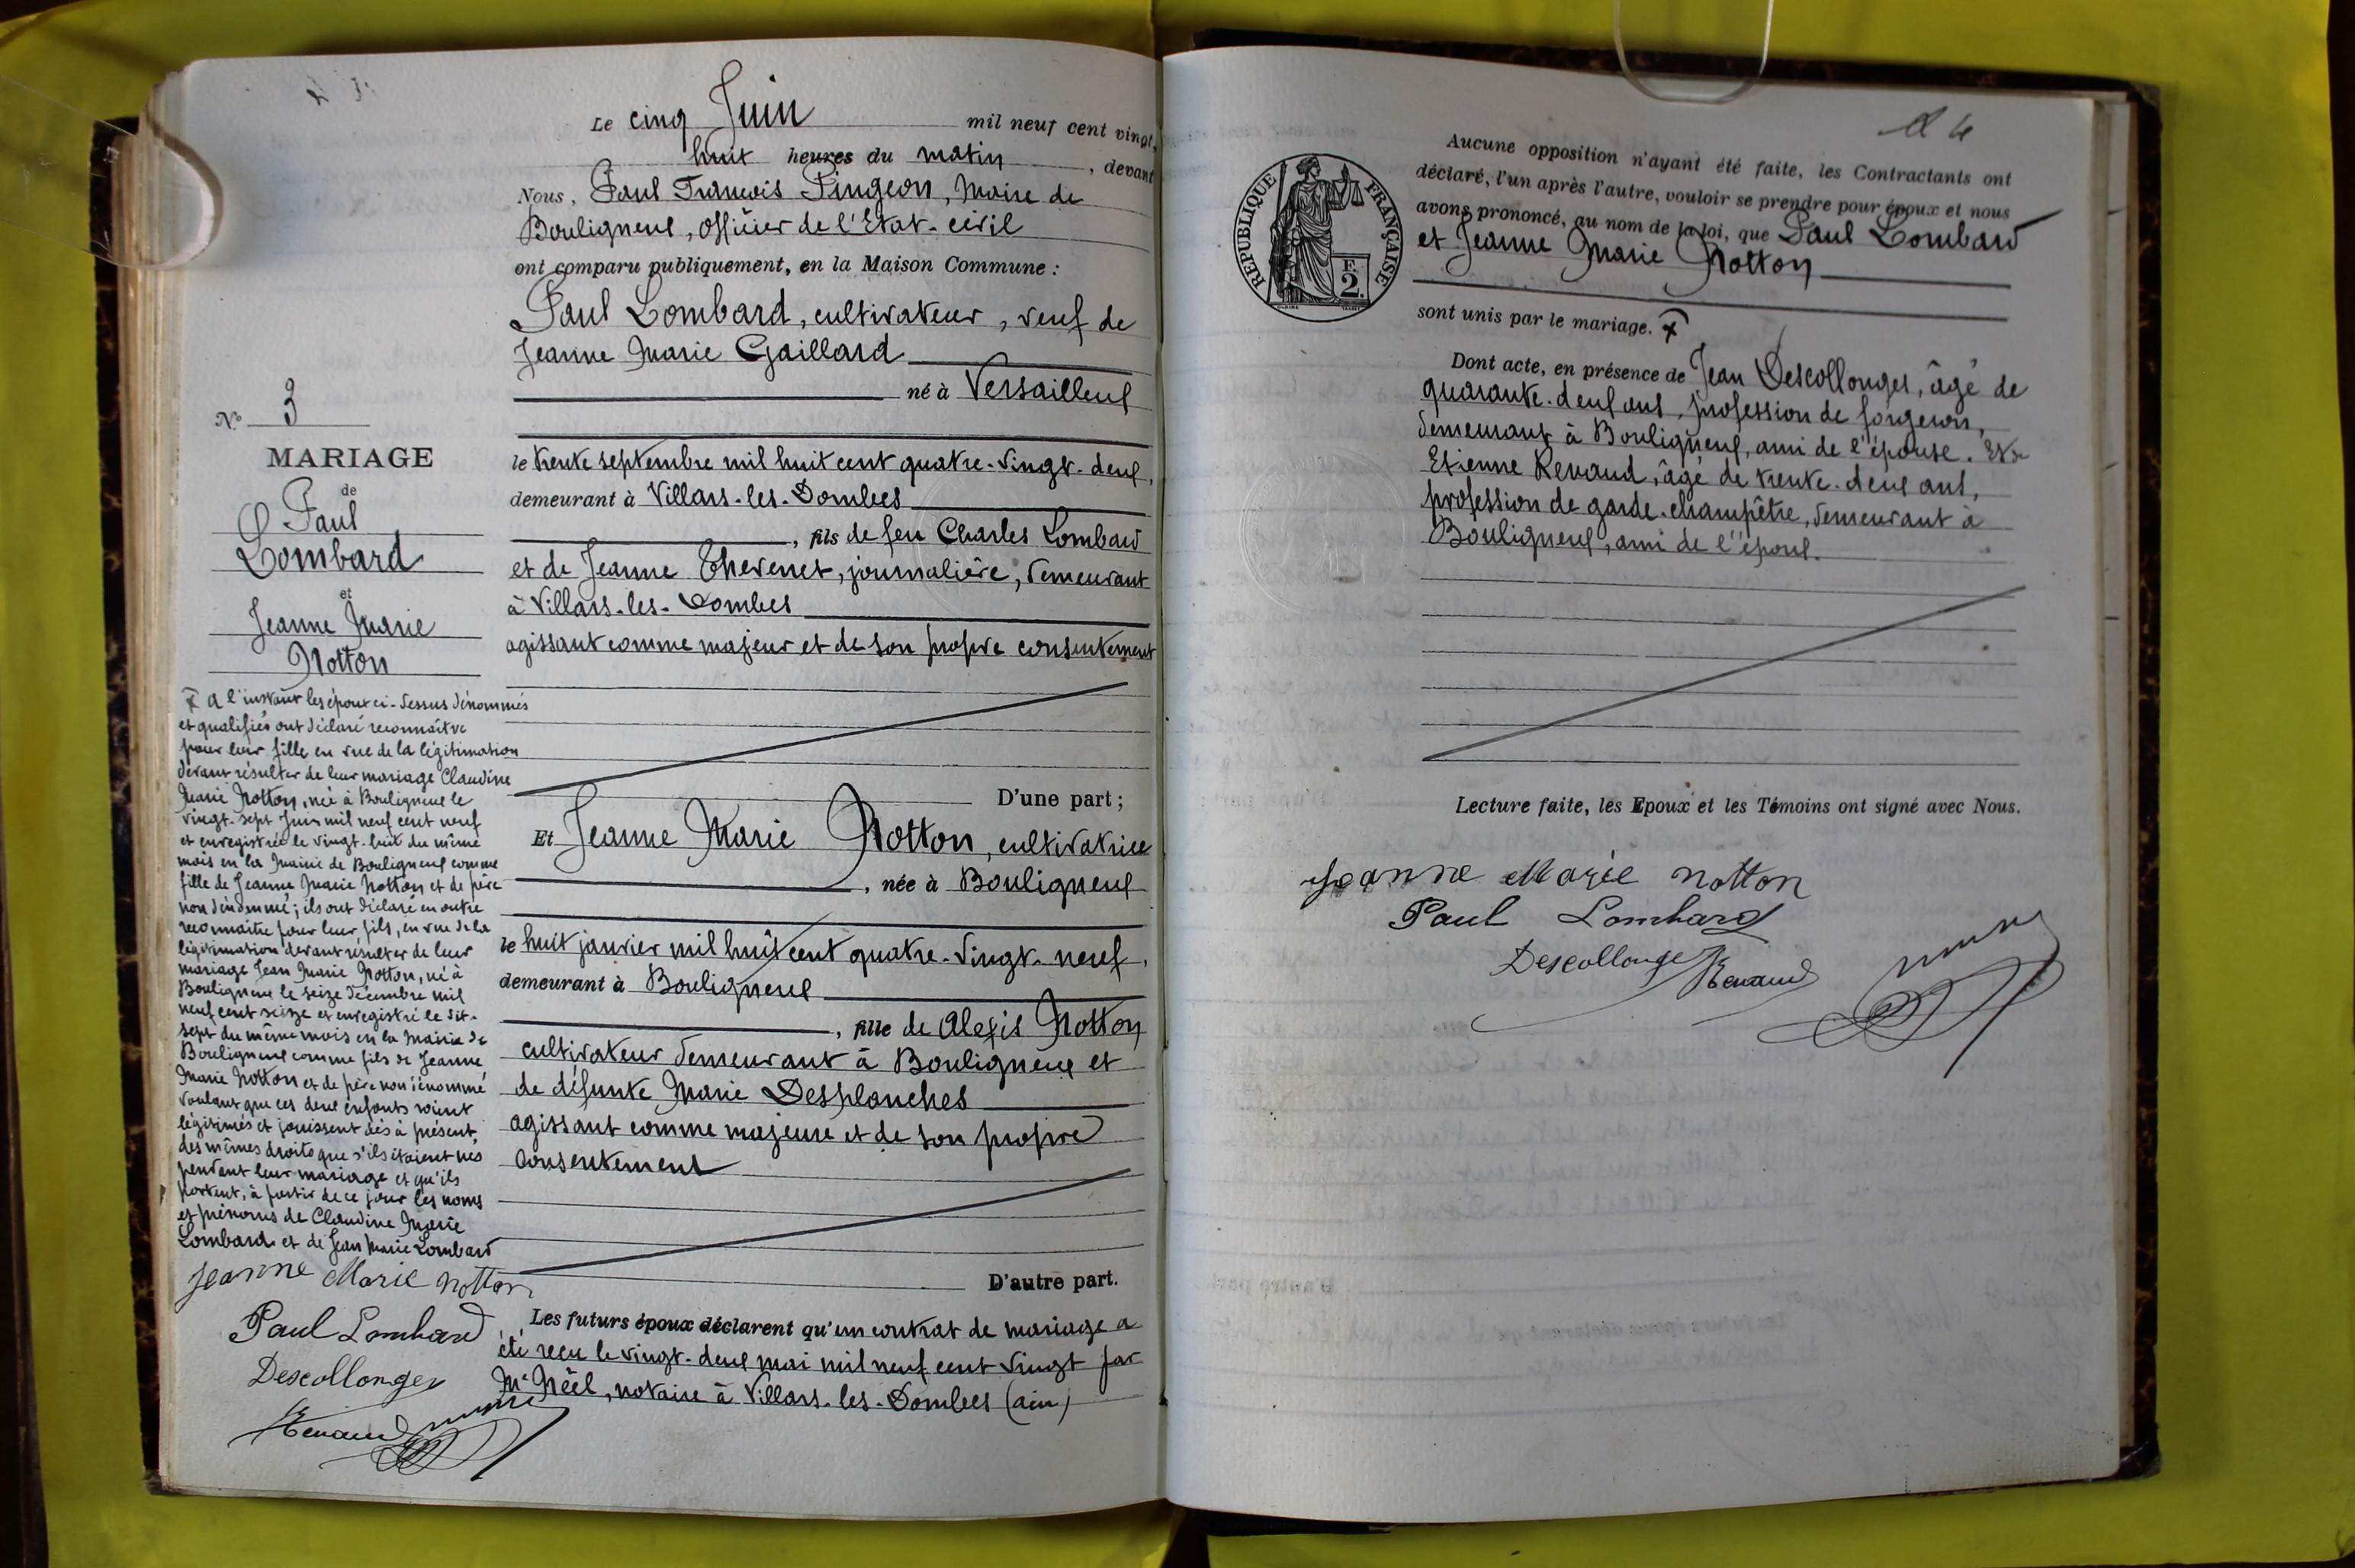 Le cinq Juin mil neuf cent vingt,
huit heures du matin, devant
Nous, Paul François Pingeon, Maire de
Bouligneux, officier de l'Etat-civil
ont comparu publiquement, en la Maison Commune :
Paul Lombard, cultivateur, veuf de
Jeanne Marie Gaillard
né à Versailleux
le trente septembre mil huit cent quatre-vingt-deux,
demeurant à Villars-les-Dombes
, fils de feu Charles Lombard
et de Jeanne Thevenet, journalière, demeurant
à Villars-les-Dombes
agissant comme majeur et de son propre consentement
D'une part ;
Et Jeanne Marie Notton, cultivatrice
, née à Bouligneux
le huit janvier mil huit cent quatre-vingt-neuf,
demeurant à Bouligneux
, fille de Alexis Notton
cultivateur demeurant à Bouligneux et
de défunte Marie Desplanches
agissant comme majeure et de son propre
consentement
D'autre part.
Les futurs époux déclarent qu'un contrat de mariage a
été reçu le vingt-deux mai mil neuf cent vingt par
Me Néel, notaire à Villars-les-Dombes (ain)
No 3
MARIAGE
de
Paul
Lombard
et
Jeanne Marie
Notton
A l'instant les époux ci-dessus dénommés
et qualifiés ont déclaré reconnaître
pour leur fille en vue de la légitimation
devant résulter de leur mariage Claudine
Marie Notton, née à Bouligneux le
vingt-sept Juin mil neuf cent neuf
et enregistrée le vingt-huit du même
mois en la Mairie de Bouligneux comme
fille de Jeanne Marie Notton et de père
non dénommé ; ils ont déclaré en outre
reconnaître pour leur fils, en vue de la
légitimation devant résulter de leur
mariage Jean Marie Notton, né à
Bouligneux le seize décembre mil
neuf cent seize et enregistré le dix-
sept du même mois en la Mairie de
Bouligneux comme fils de Jeanne
Marie Notton et de père non dénommé
voulant que ces deux enfants soient
légitimés et jouissent dès à présent,
des mêmes droits que s'ils étaient nés
pendant leur mariage et qu'ils
portent, à partir de ce jour les noms
et prénoms de Claudine Marie
Lombard et de Jean Marie Lombard
Jeanne Marie notton
Paul Lombard
Descollonges
Renaud
Aucune opposition n'ayant été faite, les Contractants ont
déclaré, l'un après l'autre, vouloir se prendre pour époux et nous
avons prononcé, au nom de la loi, que Paul Lombard
et Jeanne Marie Notton
sont unis par le mariage.
Dont acte, en présence de Jean Descollonges, âgé de
quarante-deux ans, profession de forgeron,
demeurant à Bouligneux, ami de l'épouse. Et de
Etienne Renaud, âgé de trente-deux ans,
profession de garde-champêtre, demeurant à
Bouligneux, ami de l'époux.
Lecture faite, les Epoux et les Témoins ont signé avec Nous.
Jeanne Marie notton
Paul Lombard
Descollonges
Renaud
REPUBLIQUE FRANÇAISE
2 F.